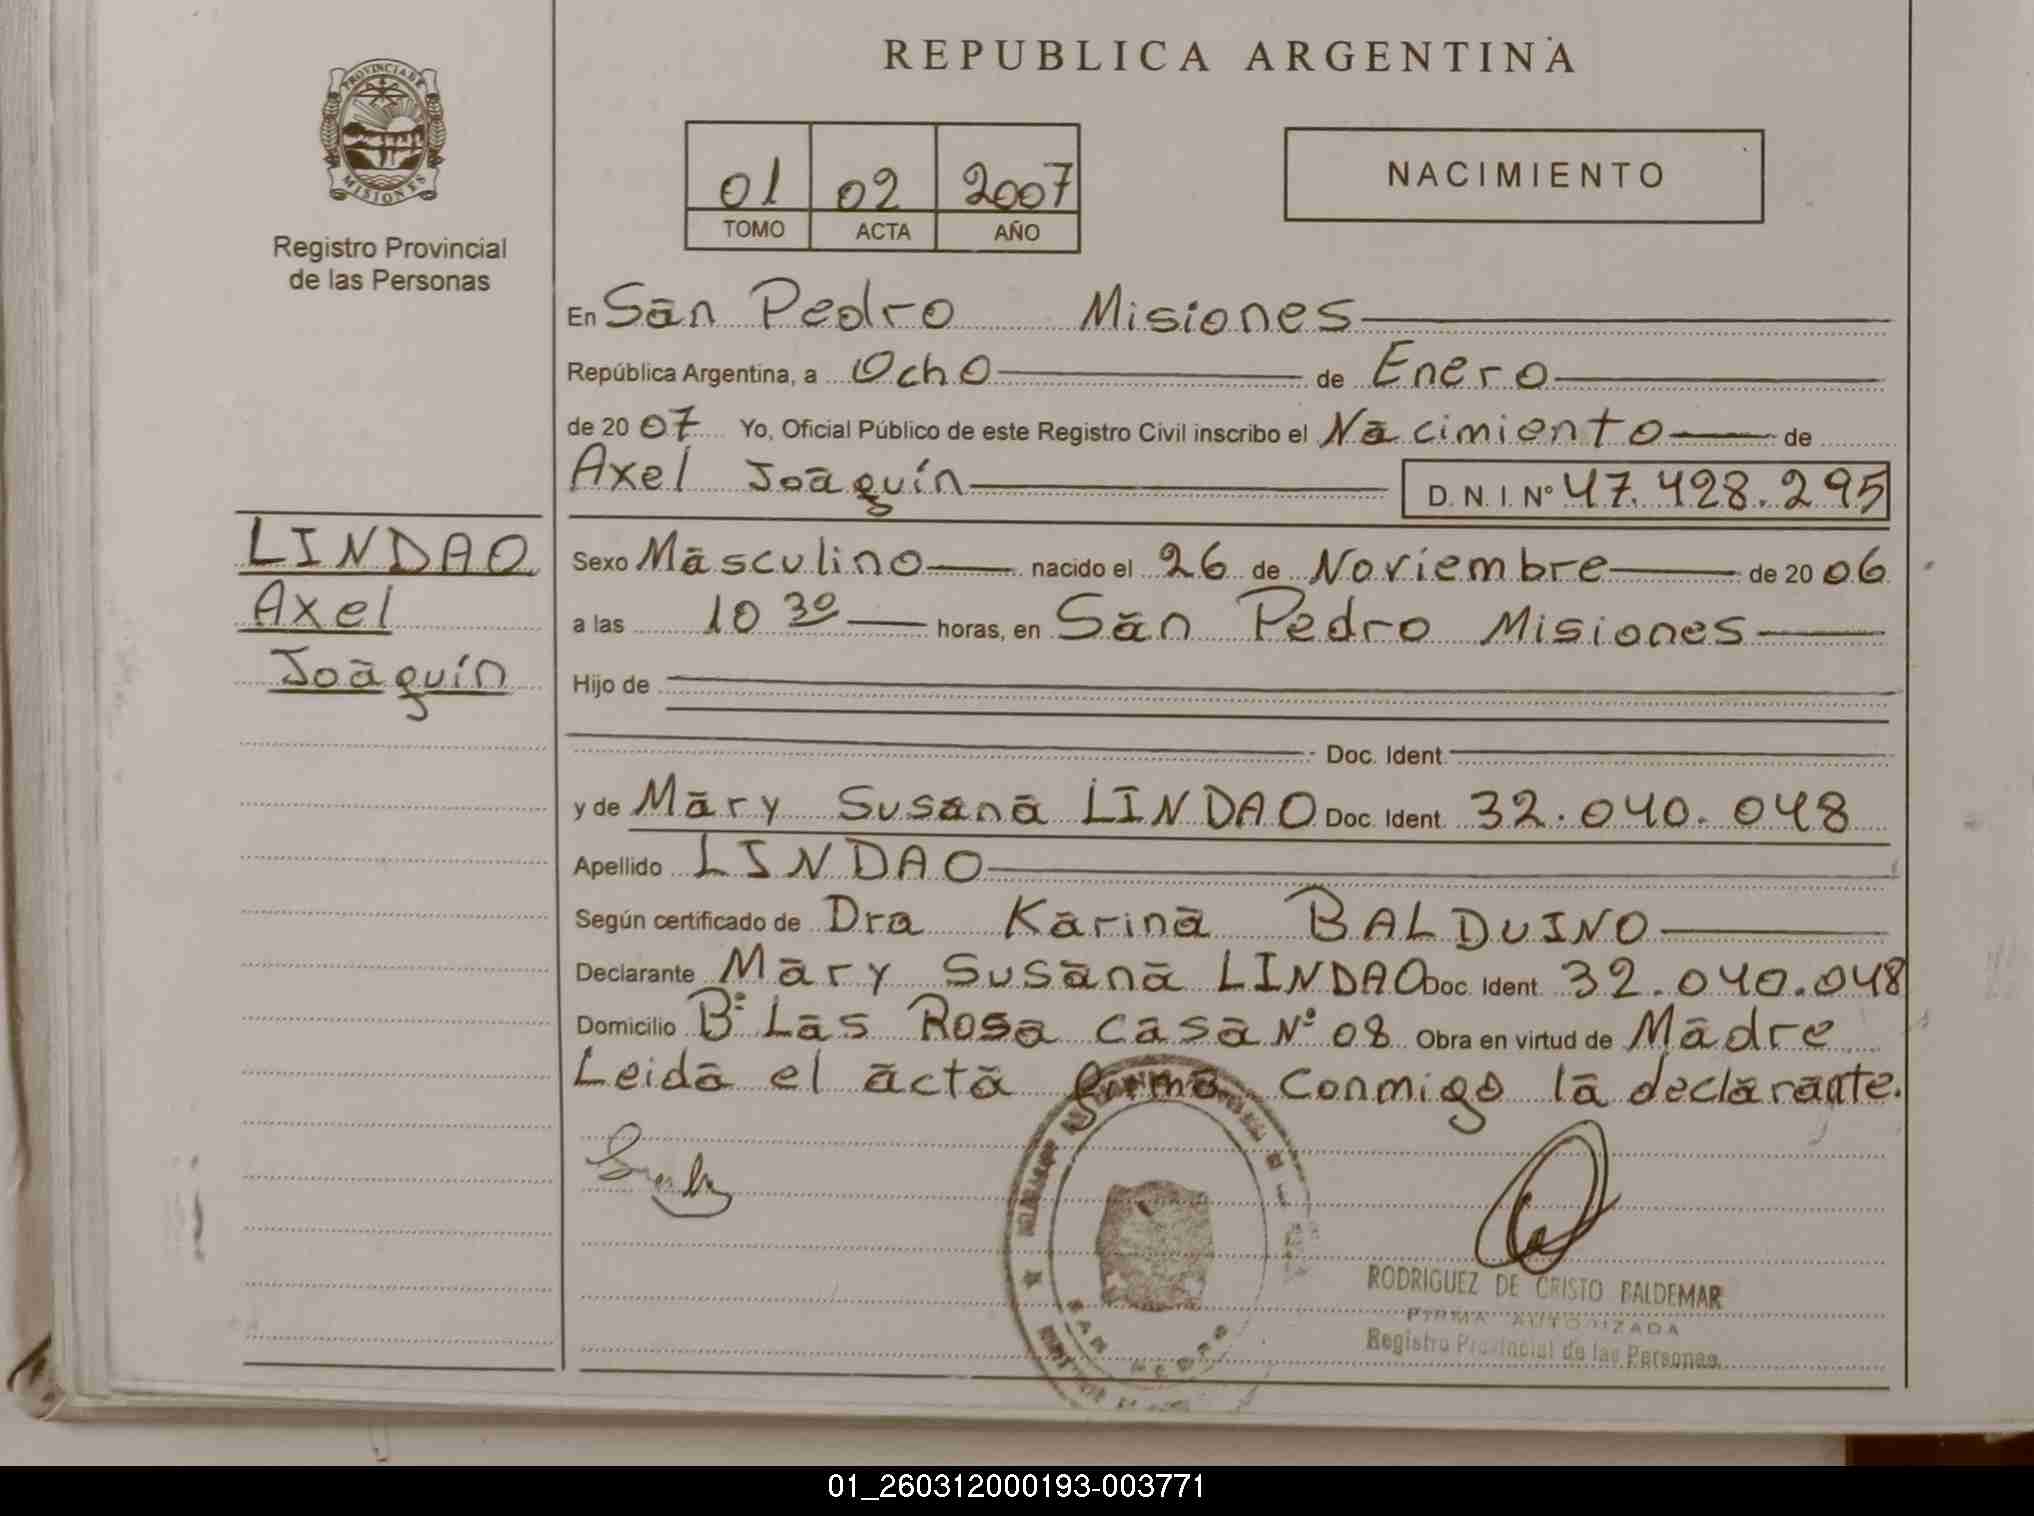 REPUBLICA ARGENTINA
PROVINCIA DE
MISIONES
Registro Provincial
de las Personas
01 02 2007
TOMO ACTA AÑO
NACIMIENTO
En San Pedro Misiones
República Argentina, a Ocho de Enero
de 2007 Yo, Oficial Público de este Registro Civil inscribo el Nacimiento de
Axel Joaquín D. N. I. Nº 47.428.295
LINDAO
Axel
Joaquín
Sexo Masculino nacido el 26 de Noviembre de 2006
a las 10 30 horas, en San Pedro Misiones
Hijo de
Doc. Ident.
y de Mary Susana LINDAO Doc. Ident. 32.040.048
Apellido LINDAO
Según certificado de Dra Karina BALDUINO
Declarante Mary Susana LINDAO Doc. Ident. 32.040.048
Domicilio Bº Las Rosa casa Nº 08 Obra en virtud de Madre
Leida el acta firma conmigo la declarante.
SAN PEDRO
RODRIGUEZ DE CRISTO BALDEMAR
FIRMA AUTORIZADA
Registro Provincial de las Personas
01_260312000193-003771